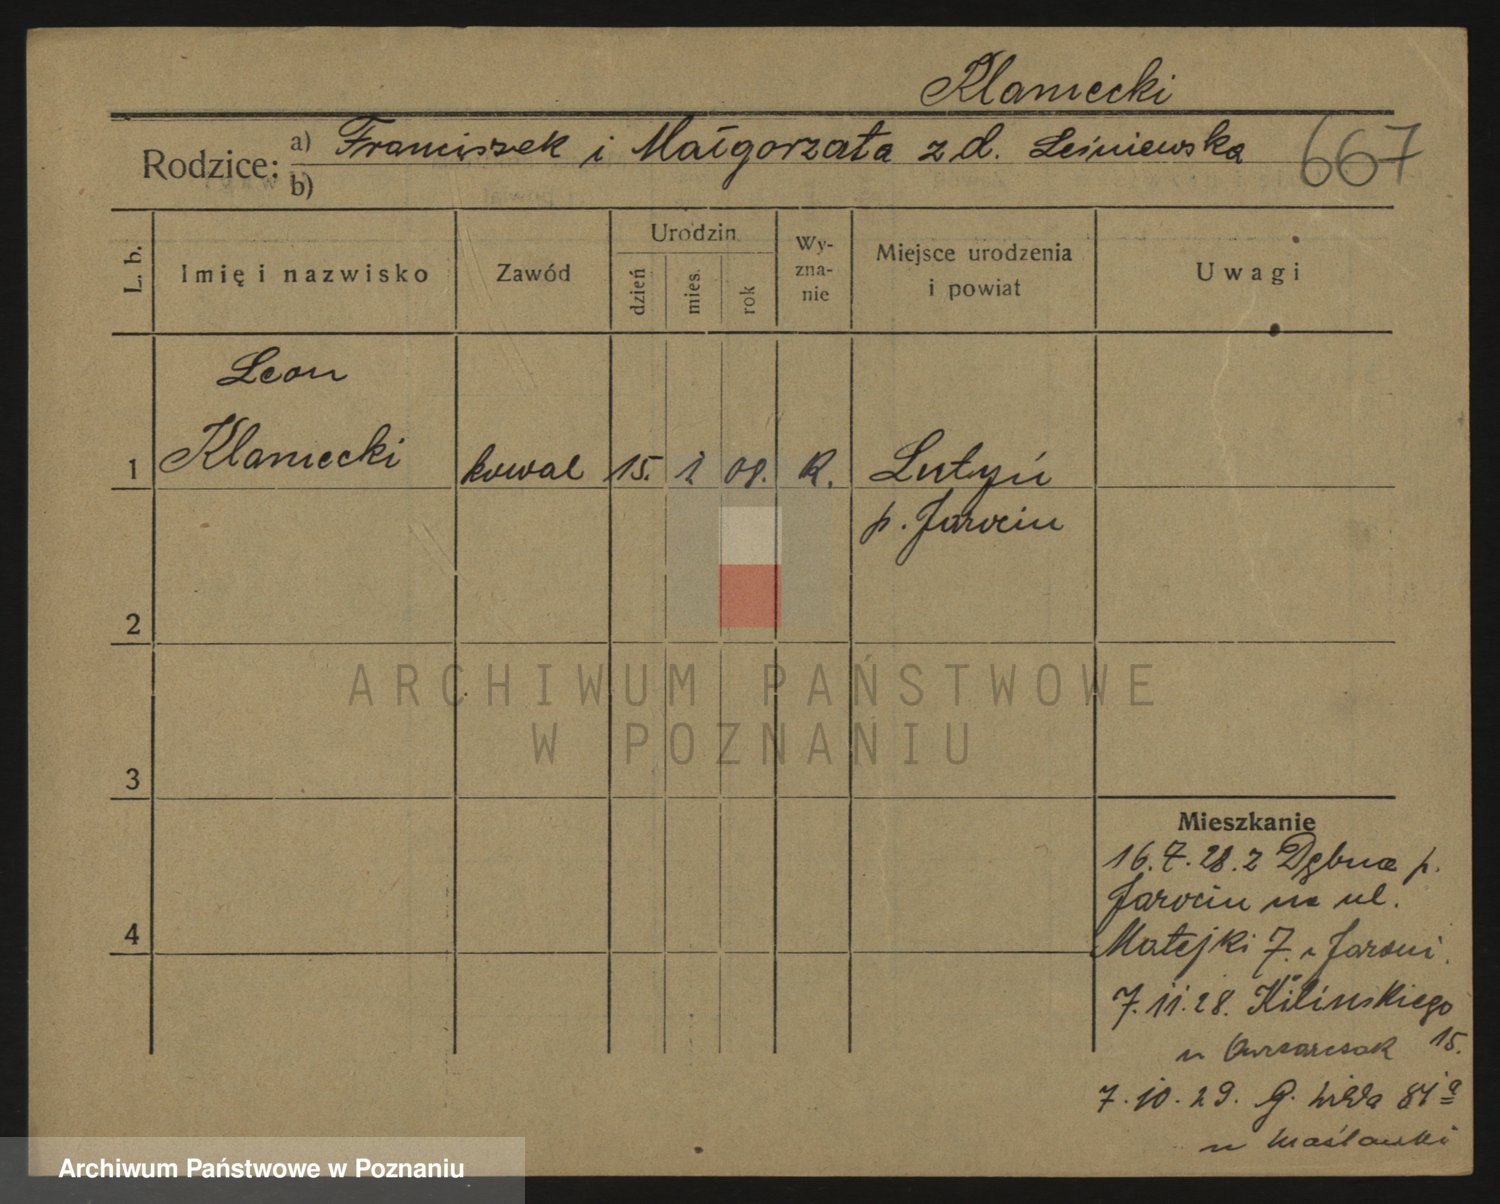 Klaniecki
Rodzice: a) Franciszek i Małgorzata z d. Leśniewska
b)
667
L. b.
Imię i nazwisko
Zawód
Urodzin
dzień
mies.
rok
Wy-
zna-
nie
Miejsce urodzenia
i powiat
Uwagi
Leon
1 Klaniecki kowal 15. 2 08. R. Lutyń
p. Jarocin
2
3
4
Mieszkanie
16.7.28. z Dębna p.
Jarocin na ul.
Matejki 7.
7.11.28. Kilińskiego
15.
7.10.29. G. Wilda 81a
ARCHIWUM PAŃSTWOWE
W POZNANIU
Archiwum Państwowe w Poznaniu